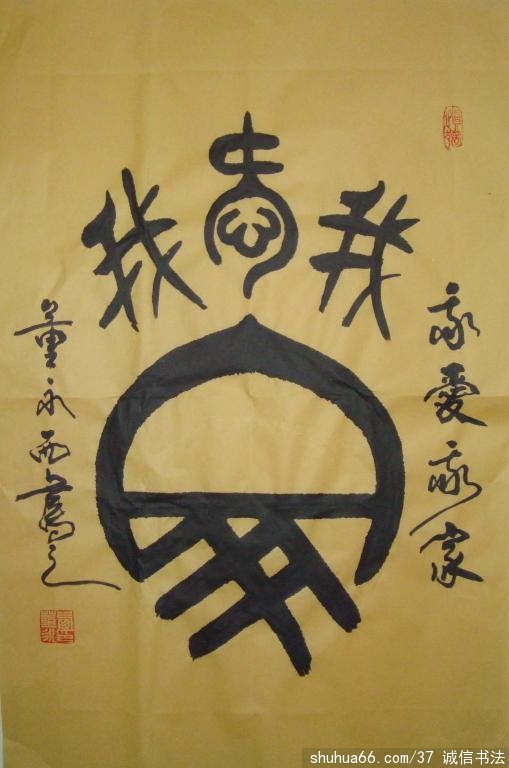 我愛我
家
我愛我家
董永西寫之
shuhua66.com/37 诚信书法